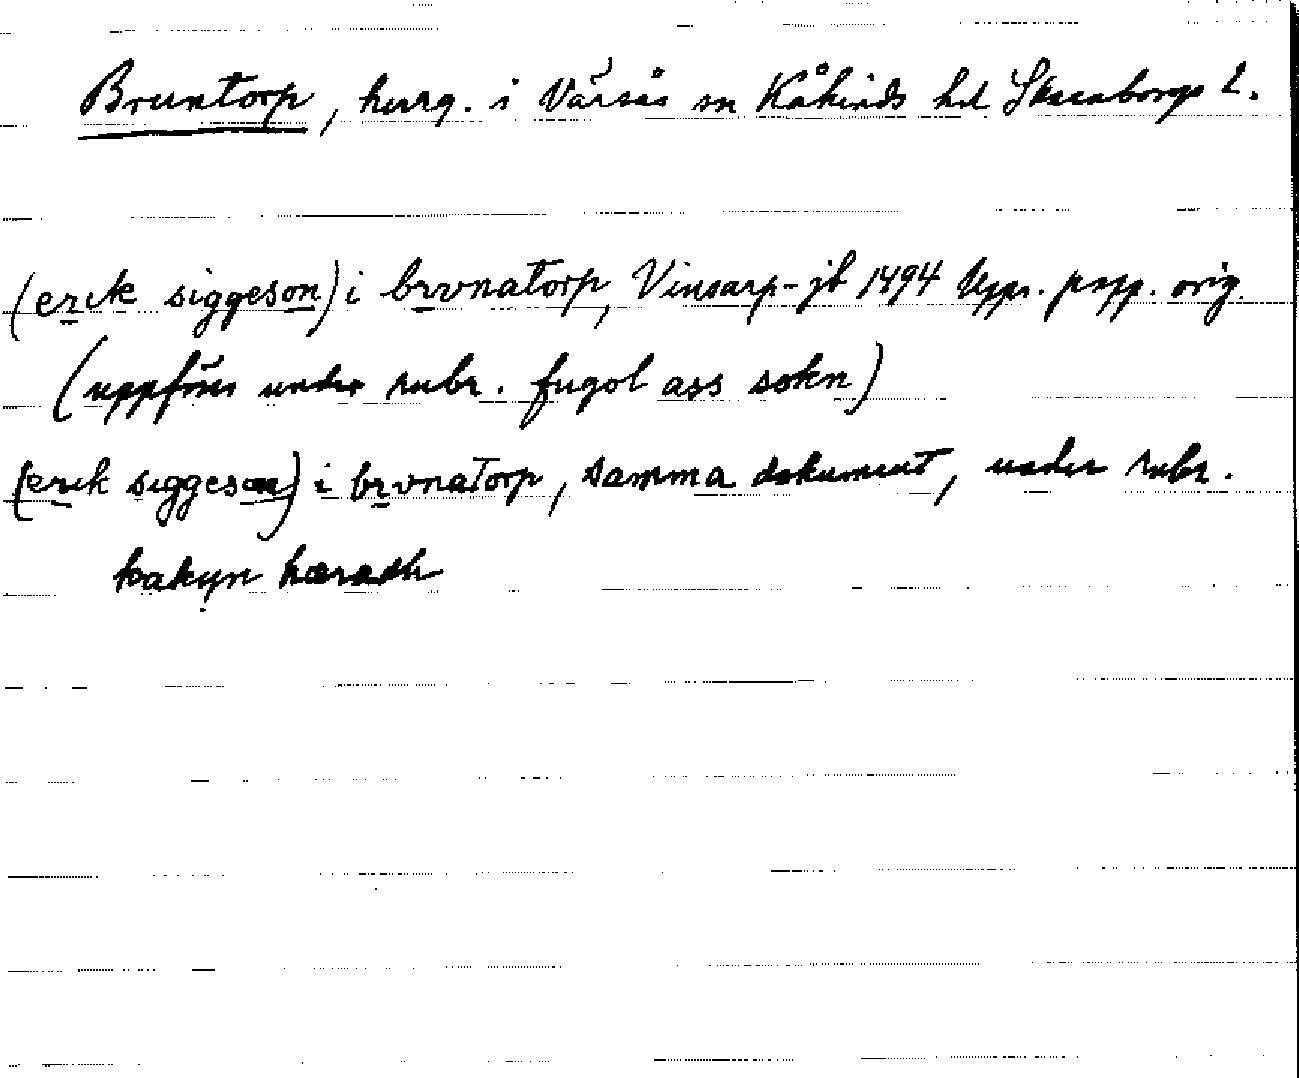 Bruntorp, herrg. i Värsås sn Kåkinds hd Skaraborgs l.
(erik siggeson) i brvnatorp, Vinsarp-jb 1494 Upps. papp. orig.
(uppföres under rubr. fugol ass sokn)
(erik siggeson) i brvnatorp, samma dokument, under rubr.
kakyn hæradh